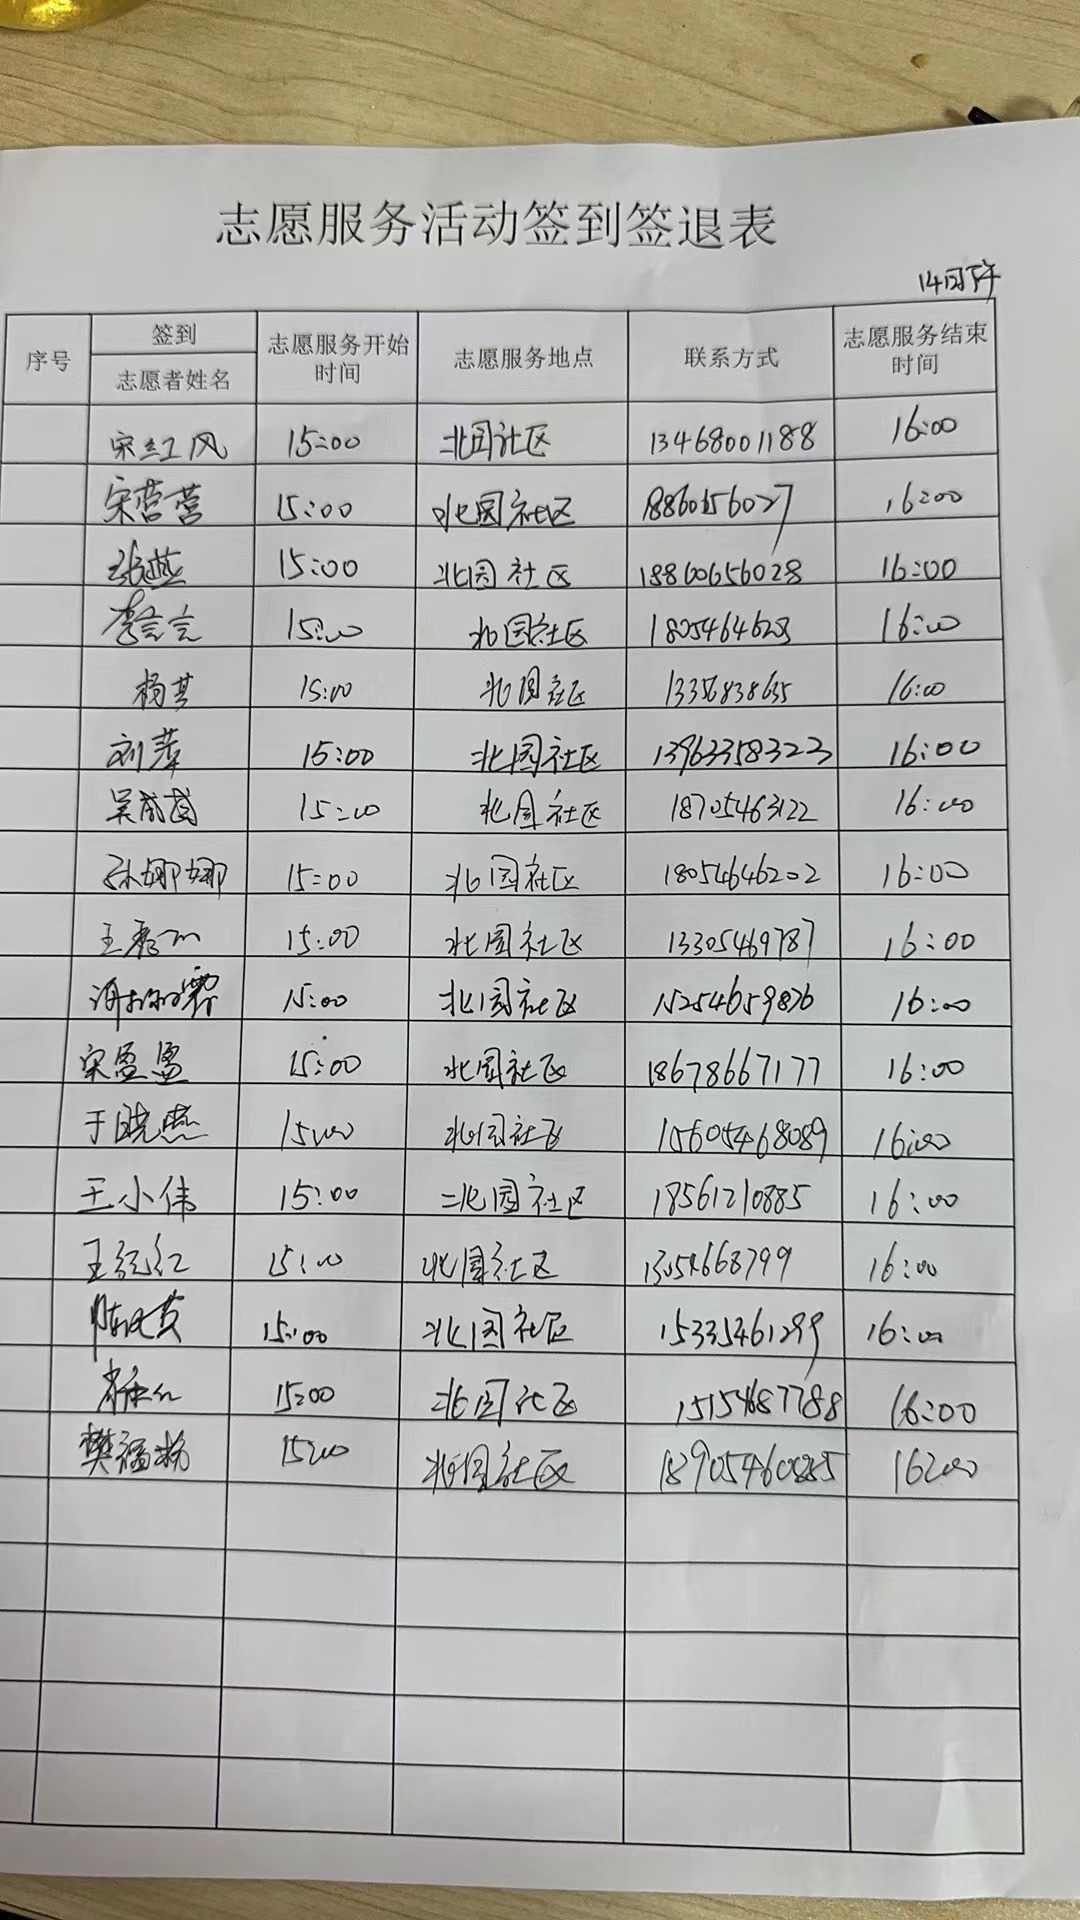 志愿服务活动签到签退表
14日下午
序号 签到 志愿者姓名 志愿服务开始时间 志愿服务地点 联系方式 志愿服务结束时间
宋红风 15:00 北园社区 13468001188 16:00
宋营营 15:00 北园社区 16:00
张燕 15:00 北园社区 18860656028 16:00
李言言 15:00 北园社区 16:00
杨梦 15:00 北园社区 16:00
刘萍 15:00 北园社区 13963358323 16:00
15:00 北园社区 18705463122 16:00
孙娜娜 15:00 北园社区 18054646202 16:00
15:00 北园社区 13305469787 16:00
15:00 北园社区 15254659876 16:00
宋盈盈 15:00 北园社区 18678667177 16:00
于晓燕 15:00 北园社区 15605468089 16:00
王小伟 15:00 北园社区 18561210885 16:00
15:00 北园社区 16:00
15:00 北园社区 15335461299 16:00
15:00 北园社区 15154687788 16:00
15:00 北园社区 16:00